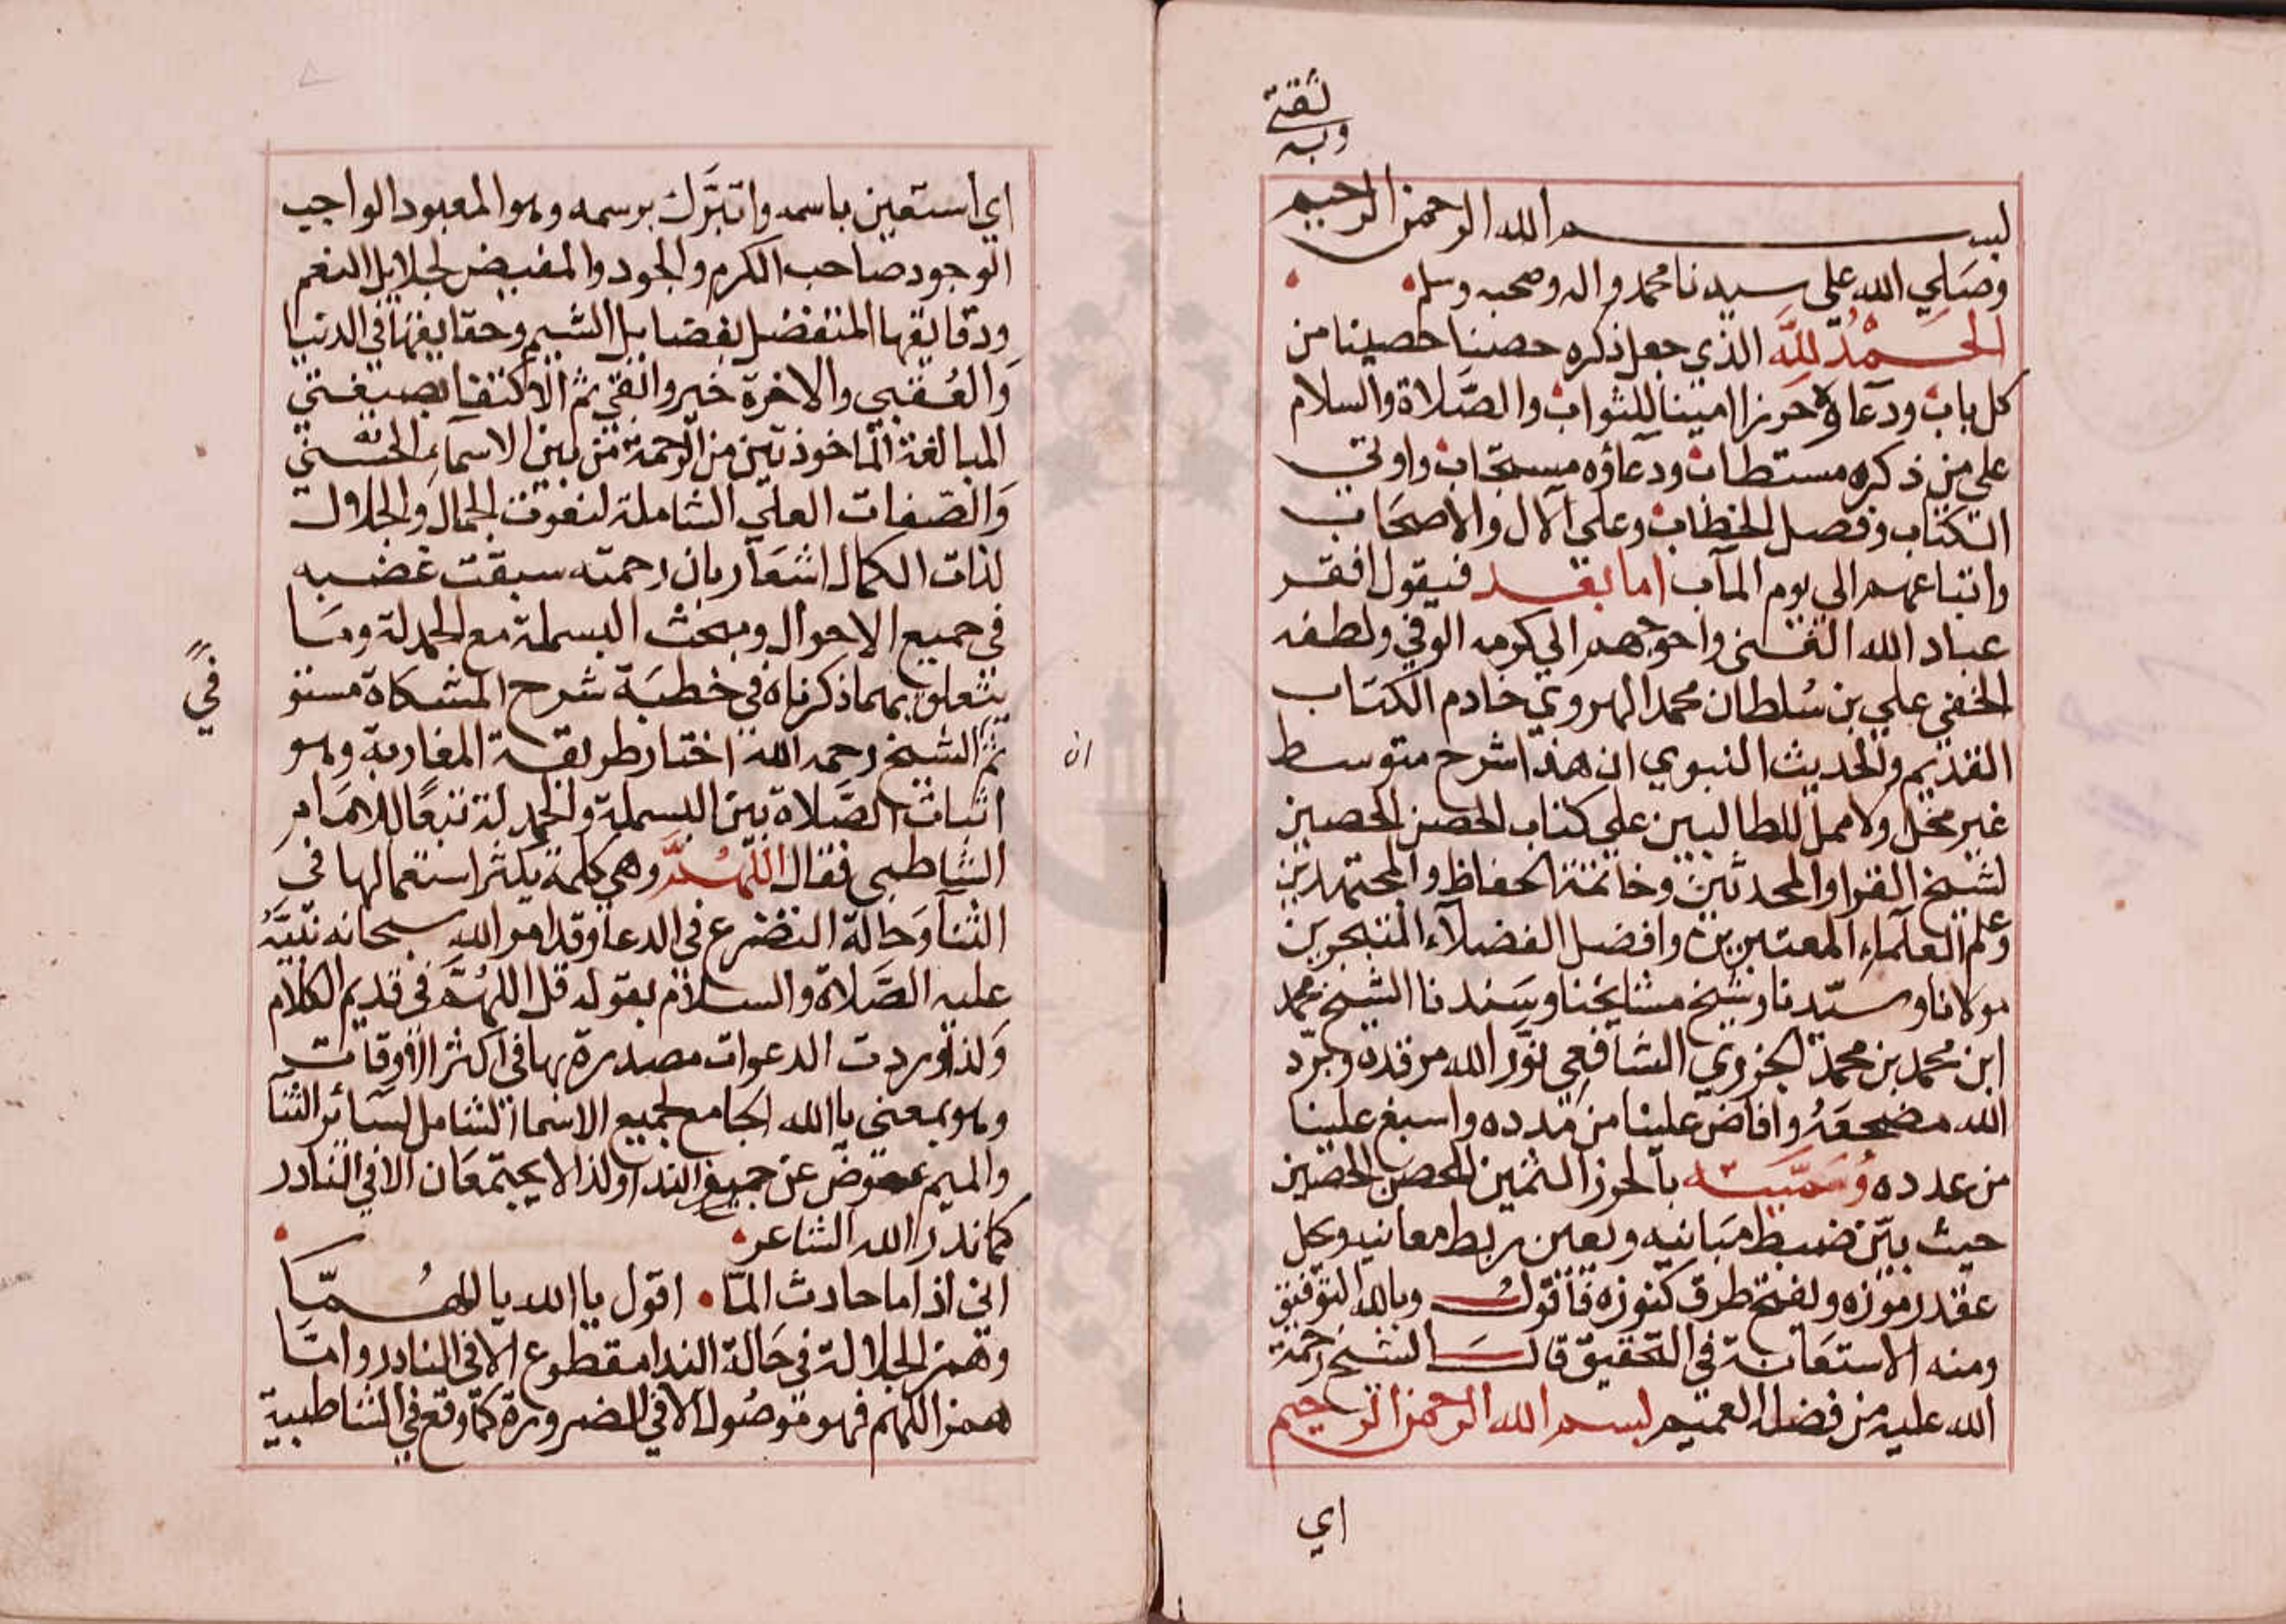 ثقتي
وبه
بسم الله الرحمن الرحيم
وصلي الله علي سيدنا محمد واله وصحبه وسلم
الحَمْدُ لِلَّهِ الذي جعل ذكره حصنا حصينا من
كل باب ودعاؤه حرزا امينا للثواب والصَّلاة والسلام
علي من ذكره مستطاب ودعاؤه مستجاب واوتي
الكتاب وفصل الخطاب وعلي آلال والاصحاب
واتباعهم الي يوم المآب اما بعد فيقول افقر
عباد الله الغني واحوجهم الي كرمه الوفي ولطفه
الخفي علي بن سُلطان محمد الهروي خادم الكتاب
القديم والحديث النبوي ان هذا شرح متوسط
غير مخل ولا ممل للطالبين علي كتاب الحصن الحصين
لشيخ القرا والمحدثين وخاتمة الحفاظ والمجتهدين
وعلم العلماء المعتبرين وافضل الفضلاء المتبحرين
مولانا وسيّدنا وشيخ مشايخنا وسَندنا الشيخ محمد
ابن محمد بن محمد الجزري الشافعي نوّر الله مرقده وبرّد
الله مضجعَهُ وافاض علينا من مدده واسبغ علينا
من عدده وسَمّيته بالحرز الثمين للحصن الحصين
حيث بيّن ضبط مبانيه ويعين ربط معانيه ويحل
عقد رموزه ويفتح طرق كنوزه فأقول وبالله التوفيق
ومنه الاستعانة في التحقيق قال الشيخ رحمة
الله عليه من فضله العميم بسم الله الرحمن الرحيم
اي
اي استعين باسمه واتبرّك برسمه وهو المعبود الواجب
الوجود صاحب الكرم والجود والمفيض لجلايل النعم
ودقايقها المتفضل بفضايل الشيم وحقايقها في الدنيا
والعُقبي والاخرة خير وابقي ثم الاكتفا بصيغتي
المبالغة الماخوذتين من الرحمة من بين الاسماء الحسني
والصّفات العلي الشاملة لنعوت الجمال والجلال
لذات الكمال اشعَار بان رحمته سبقت غضبه
في جميع الاحوال ومبحث البسملة مع الحمدلة ومَا
يتعلق بهما ذكرناه في خطبَة شرح المشكاة مستو
في
ثم الشيخ رحمه الله اختار طريقة المغاربة وهو
ان
اثبات الصَّلاة بين البسملة والحمدلة تبعًا للامَام
الشاطبي فقال اللَّهُمَّ وهي كلمة يكثر استعمالها في
الثنا وحَالة التضرع في الدعا وقد امر الله سبحانه نبيَّهُ
عليه الصَّلاة والسلام بقوله قل اللهُمَّ في قديم الكلام
ولذا وردت الدعوات مصدرة بها في اكثر الاوقات
وهو بمعني يا الله الجامع لجميع الاسما الشامل لسَائر الثنا
والميم عوض عن حرف الندا ولذا لا يجتمعَان الا في النادر
كما ندر الله الشاعر
اني اذا ما حادث المّا اقول يا الله يا اللهُمّا
وهمز الجلالة في حَالة الندا مقطوع الا في النادر وامّا
همز اللهم فهو موصُول الا في الضرورة كما وقع في الشاطبية